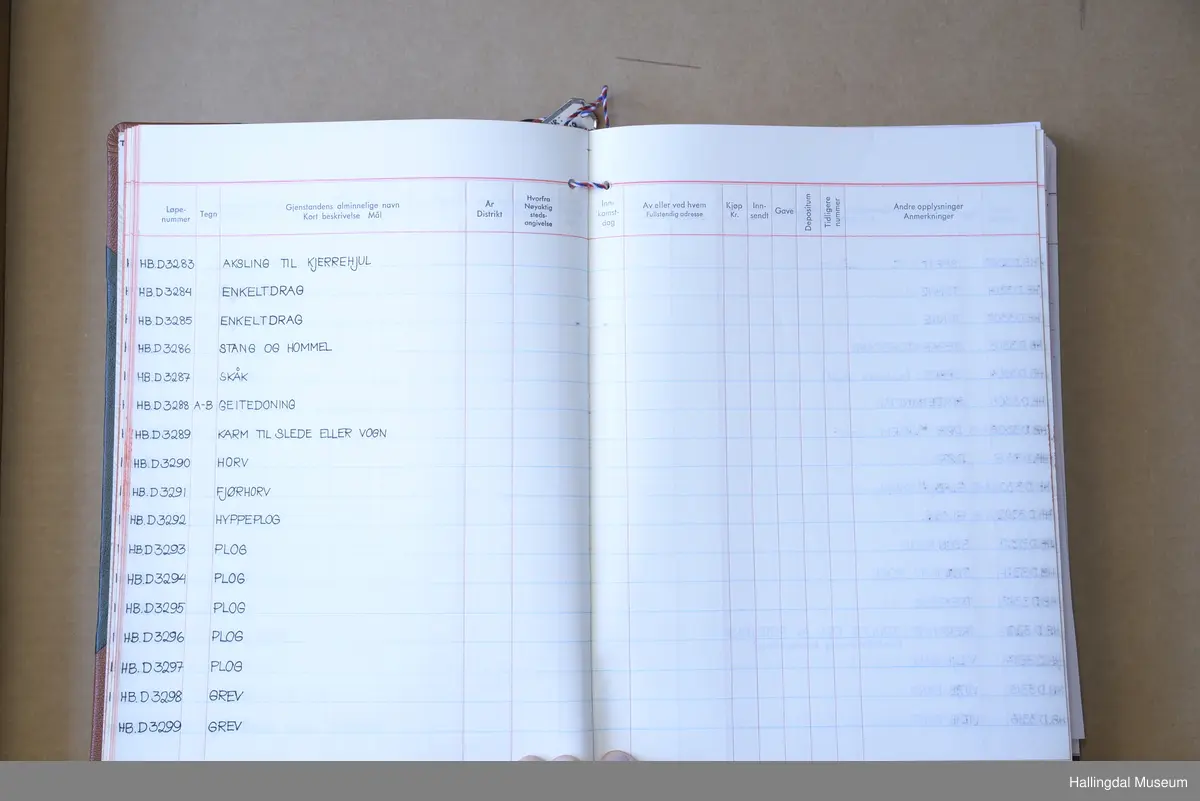 Løpe-
nummer
Tegn
Gjenstandens alminnelige navn
Kort beskrivelse Mål
År
Distrikt
Hvorfra
Nøyaktig
steds-
angivelse
Inn-
komst-
dag
Av eller ved hvem
Fullstendig adresse
Kjøp
Kr.
Inn-
sendt
Gave
Depositum
Tidligere
nummer
Andre opplysninger
Anmerkninger
HB.D3283 AKSLING TIL KJERREHJUL
HB.D3284 ENKELTDRAG
HB.D3285 ENKELTDRAG
HB.D3286 STANG OG HOMMEL
HB.D3287 SKÅK
HB.D3288 A-B GEITEDONING
HB.D3289 KARM TIL SLEDE ELLER VOGN
HB.D3290 HORV
HB.D3291 FJØRHORV
HB.D3292 HYPPEPLOG
HB.D3293 PLOG
HB.D3294 PLOG
HB.D3295 PLOG
HB.D3296 PLOG
HB.D3297 PLOG
HB.D3298 GREV
HB.D3299 GREV
Hallingdal Museum